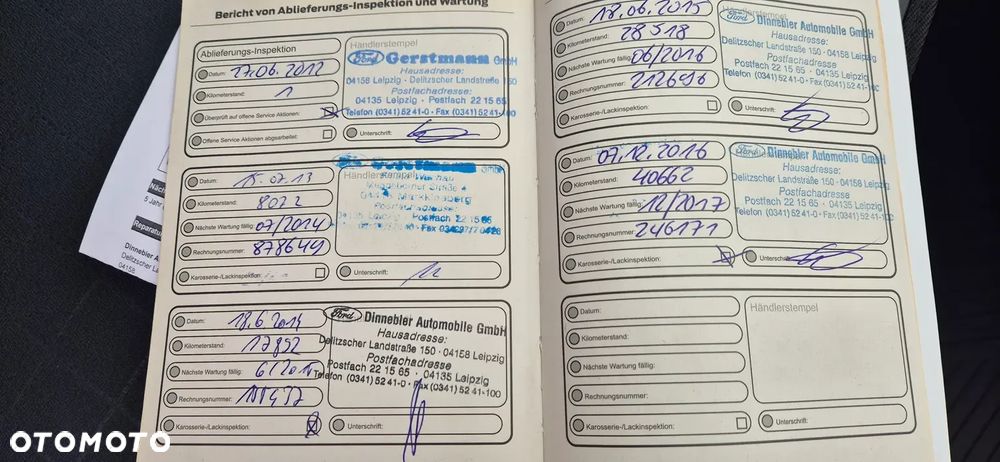 Bericht von Ablieferungs-Inspektion und Wartung
Ablieferungs-Inspektion
Händlerstempel
Datum: 27.06.2012
Kilometerstand: 1
Überprüft auf offene Service Aktionen:
Offene Service Aktionen abgearbeitet:
Unterschrift:
Ford Gerstmann GmbH
Hausadresse:
04158 Leipzig · Delitzscher Landstraße 150
Postfachadresse:
04135 Leipzig · Postfach 22 15 65
Telefon (0341) 52 41-0 · Fax (0341) 52 41-100
Datum: 15.07.13
Kilometerstand: 8072
Nächste Wartung fällig: 07/2014
Rechnungsnummer: 878649
Karosserie-/Lackinspektion:
Händlerstempel
Postfach 22 15 65
Unterschrift:
Datum: 18.6.2014
Kilometerstand: 17852
Nächste Wartung fällig:
Rechnungsnummer:
Karosserie-/Lackinspektion:
Ford Dinnebler Automobile GmbH
Hausadresse:
Delitzscher Landstraße 150 · 04158 Leipzig
Postfachadresse
Postfach 22 15 65 · 04135 Leipzig
Telefon (0341) 52 41-0 · Fax (0341) 52 41-100
Unterschrift:
Datum: 18.06.2015
Kilometerstand: 28518
Nächste Wartung fällig: 06/2016
Rechnungsnummer: 212696
Karosserie-/Lackinspektion:
Ford Dinnebler Automobile GmbH
Hausadresse:
Delitzscher Landstraße 150 · 04158 Leipzig
Postfachadresse
Postfach 22 15 65 · 04135 Leipzig
Telefon (0341) 52 41-0 · Fax (0341) 52 41-100
Unterschrift:
Datum: 07.12.2016
Kilometerstand: 40662
Nächste Wartung fällig: 12/2017
Rechnungsnummer: 246171
Karosserie-/Lackinspektion:
Ford Dinnebler Automobile GmbH
Hausadresse:
Delitzscher Landstraße 150 · 04158 Leipzig
Postfachadresse
Postfach 22 15 65 · 04135 Leipzig
Telefon (0341) 52 41-0 · Fax (0341) 52 41-100
Unterschrift:
Datum:
Kilometerstand:
Nächste Wartung fällig:
Rechnungsnummer:
Karosserie-/Lackinspektion:
Händlerstempel
Unterschrift:
5 Jahr
Reparatur
Dinnebler
Delitzscher
04158
OTOMOTO